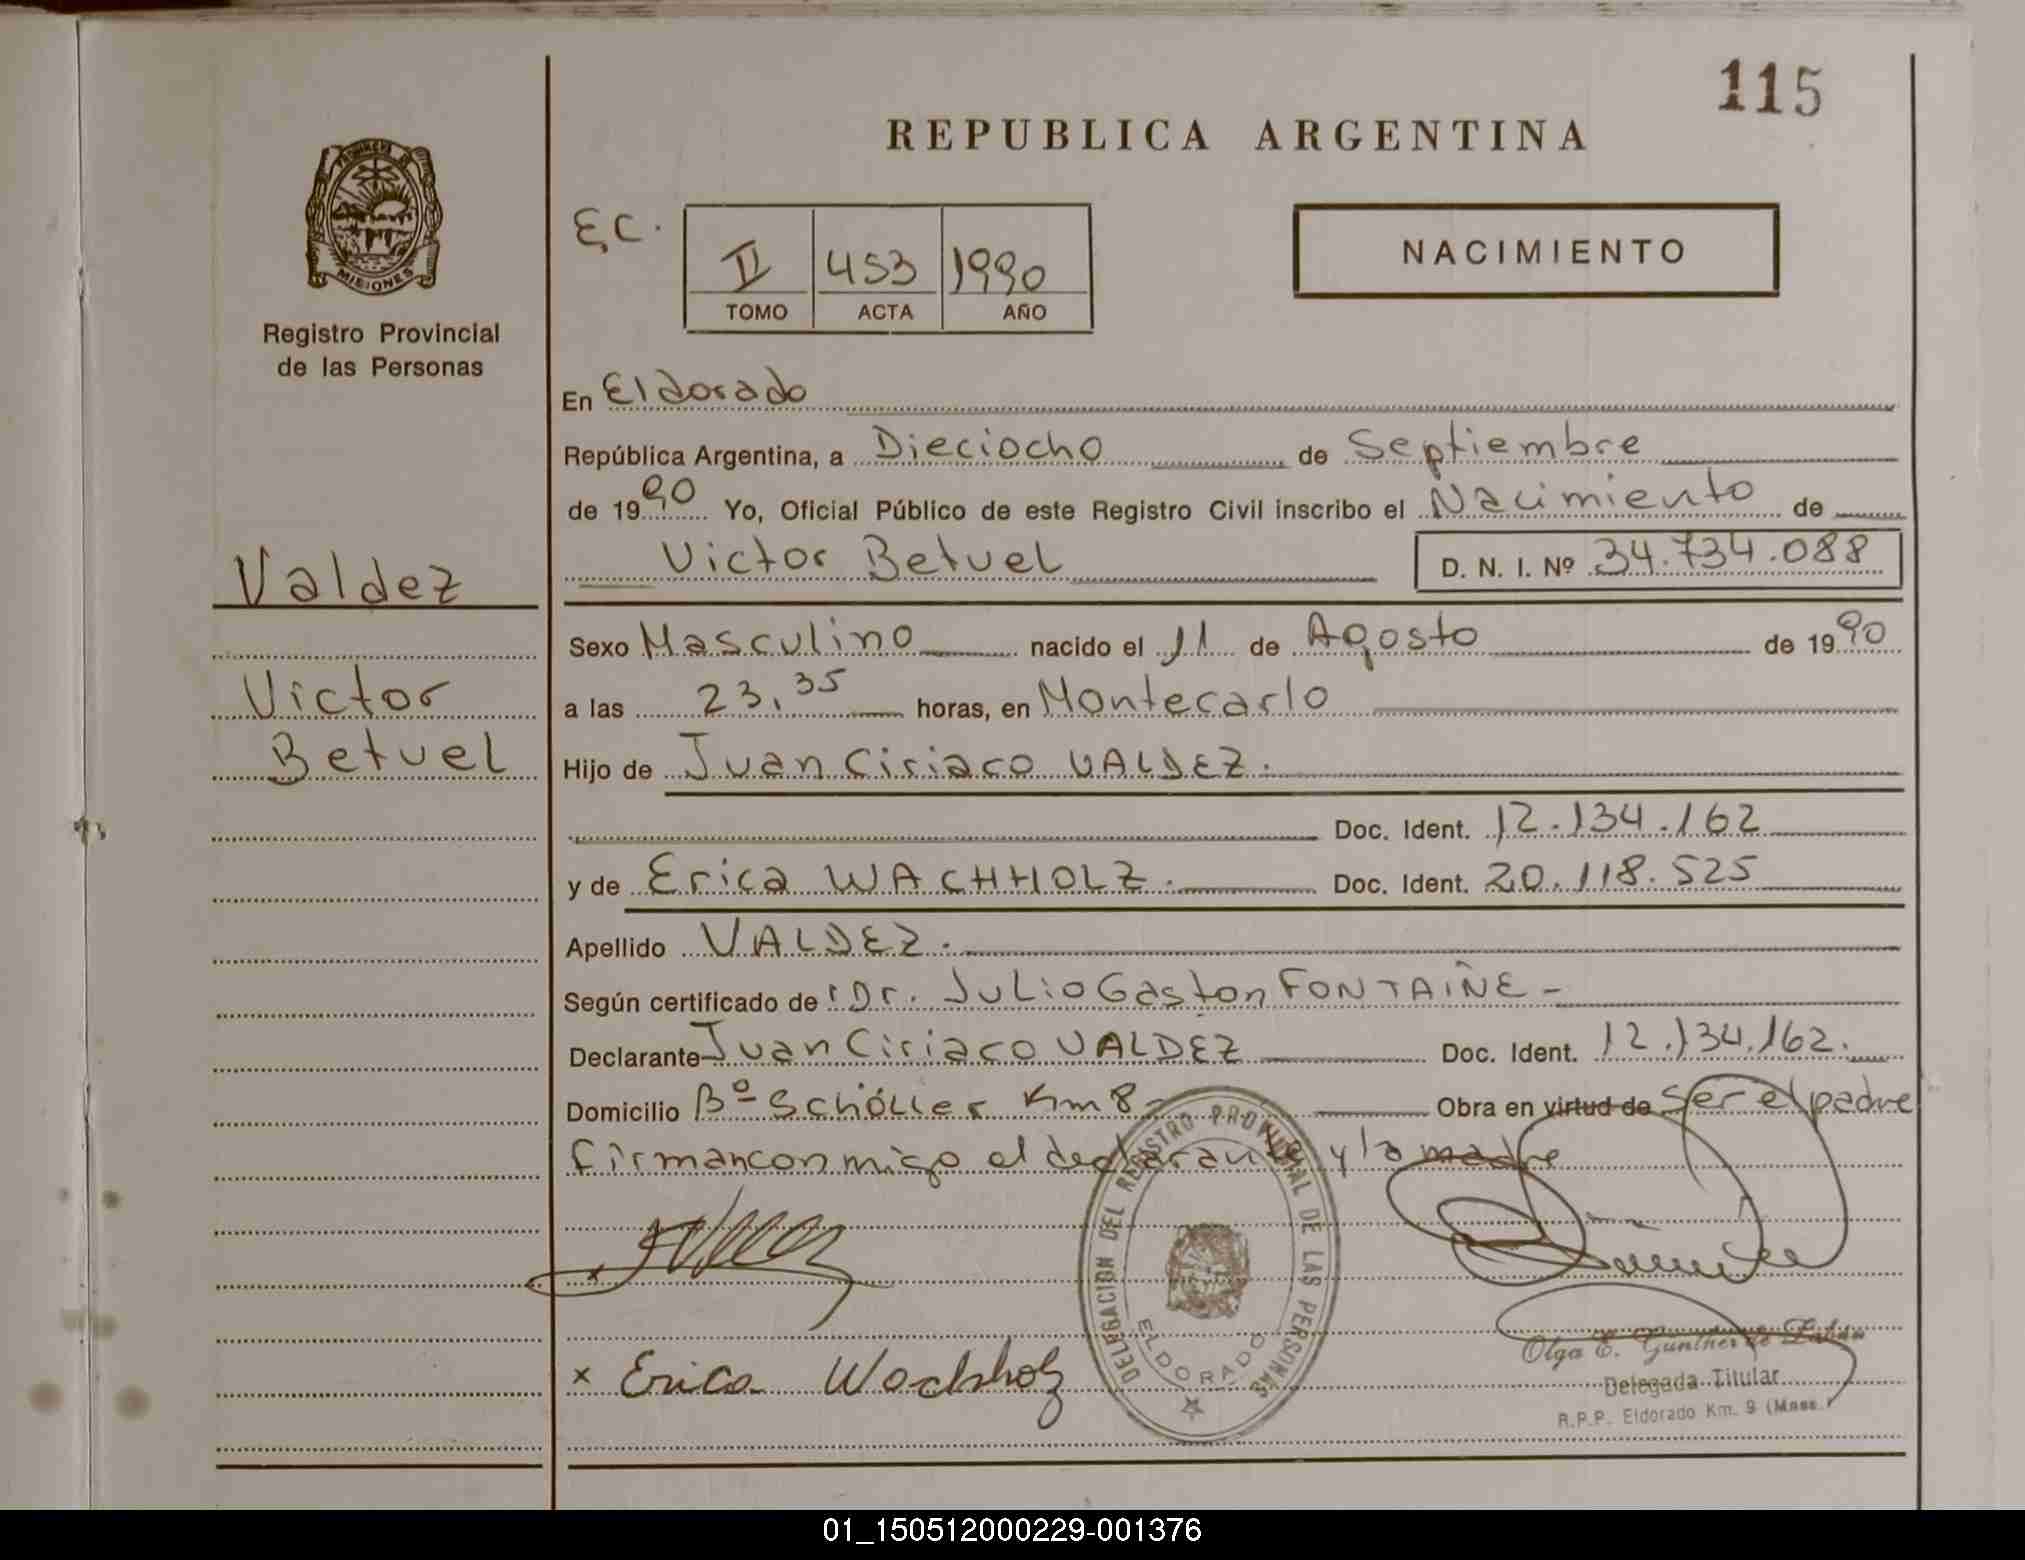 115
REPUBLICA ARGENTINA
PROVINCIA DE
MISIONES
Registro Provincial
de las Personas
E.C.
II 453 1990
TOMO ACTA AÑO
NACIMIENTO
En Eldorado
República Argentina, a Dieciocho de Septiembre
de 1990 Yo, Oficial Público de este Registro Civil inscribo el Nacimiento de
Victor Betuel D. N. I. Nº 34.734.088
Valdez
Victor
Betuel
Sexo Masculino nacido el 11 de Agosto de 1990
a las 23,35 horas, en Montecarlo
Hijo de Juan Ciriaco VALDEZ.
Doc. Ident. 12.134.162
y de Erica WACHHOLZ. Doc. Ident. 20.118.525
Apellido VALDEZ.
Según certificado de Dr. Julio Gaston FONTAIÑE -
Declarante Juan Ciriaco VALDEZ Doc. Ident. 12.134.162.
Domicilio Bº Schöller Km 8 - Obra en virtud de ser el padre
firman conmigo el declarante y la madre
DELEGACION DEL REGISTRO PROVINCIAL DE LAS PERSONAS
ELDORADO
x
x Erica Wachholz
Olga E. Günther de
Delegada Titular
R.P.P. Eldorado Km. 9 (Mnes.)
01_150512000229-001376